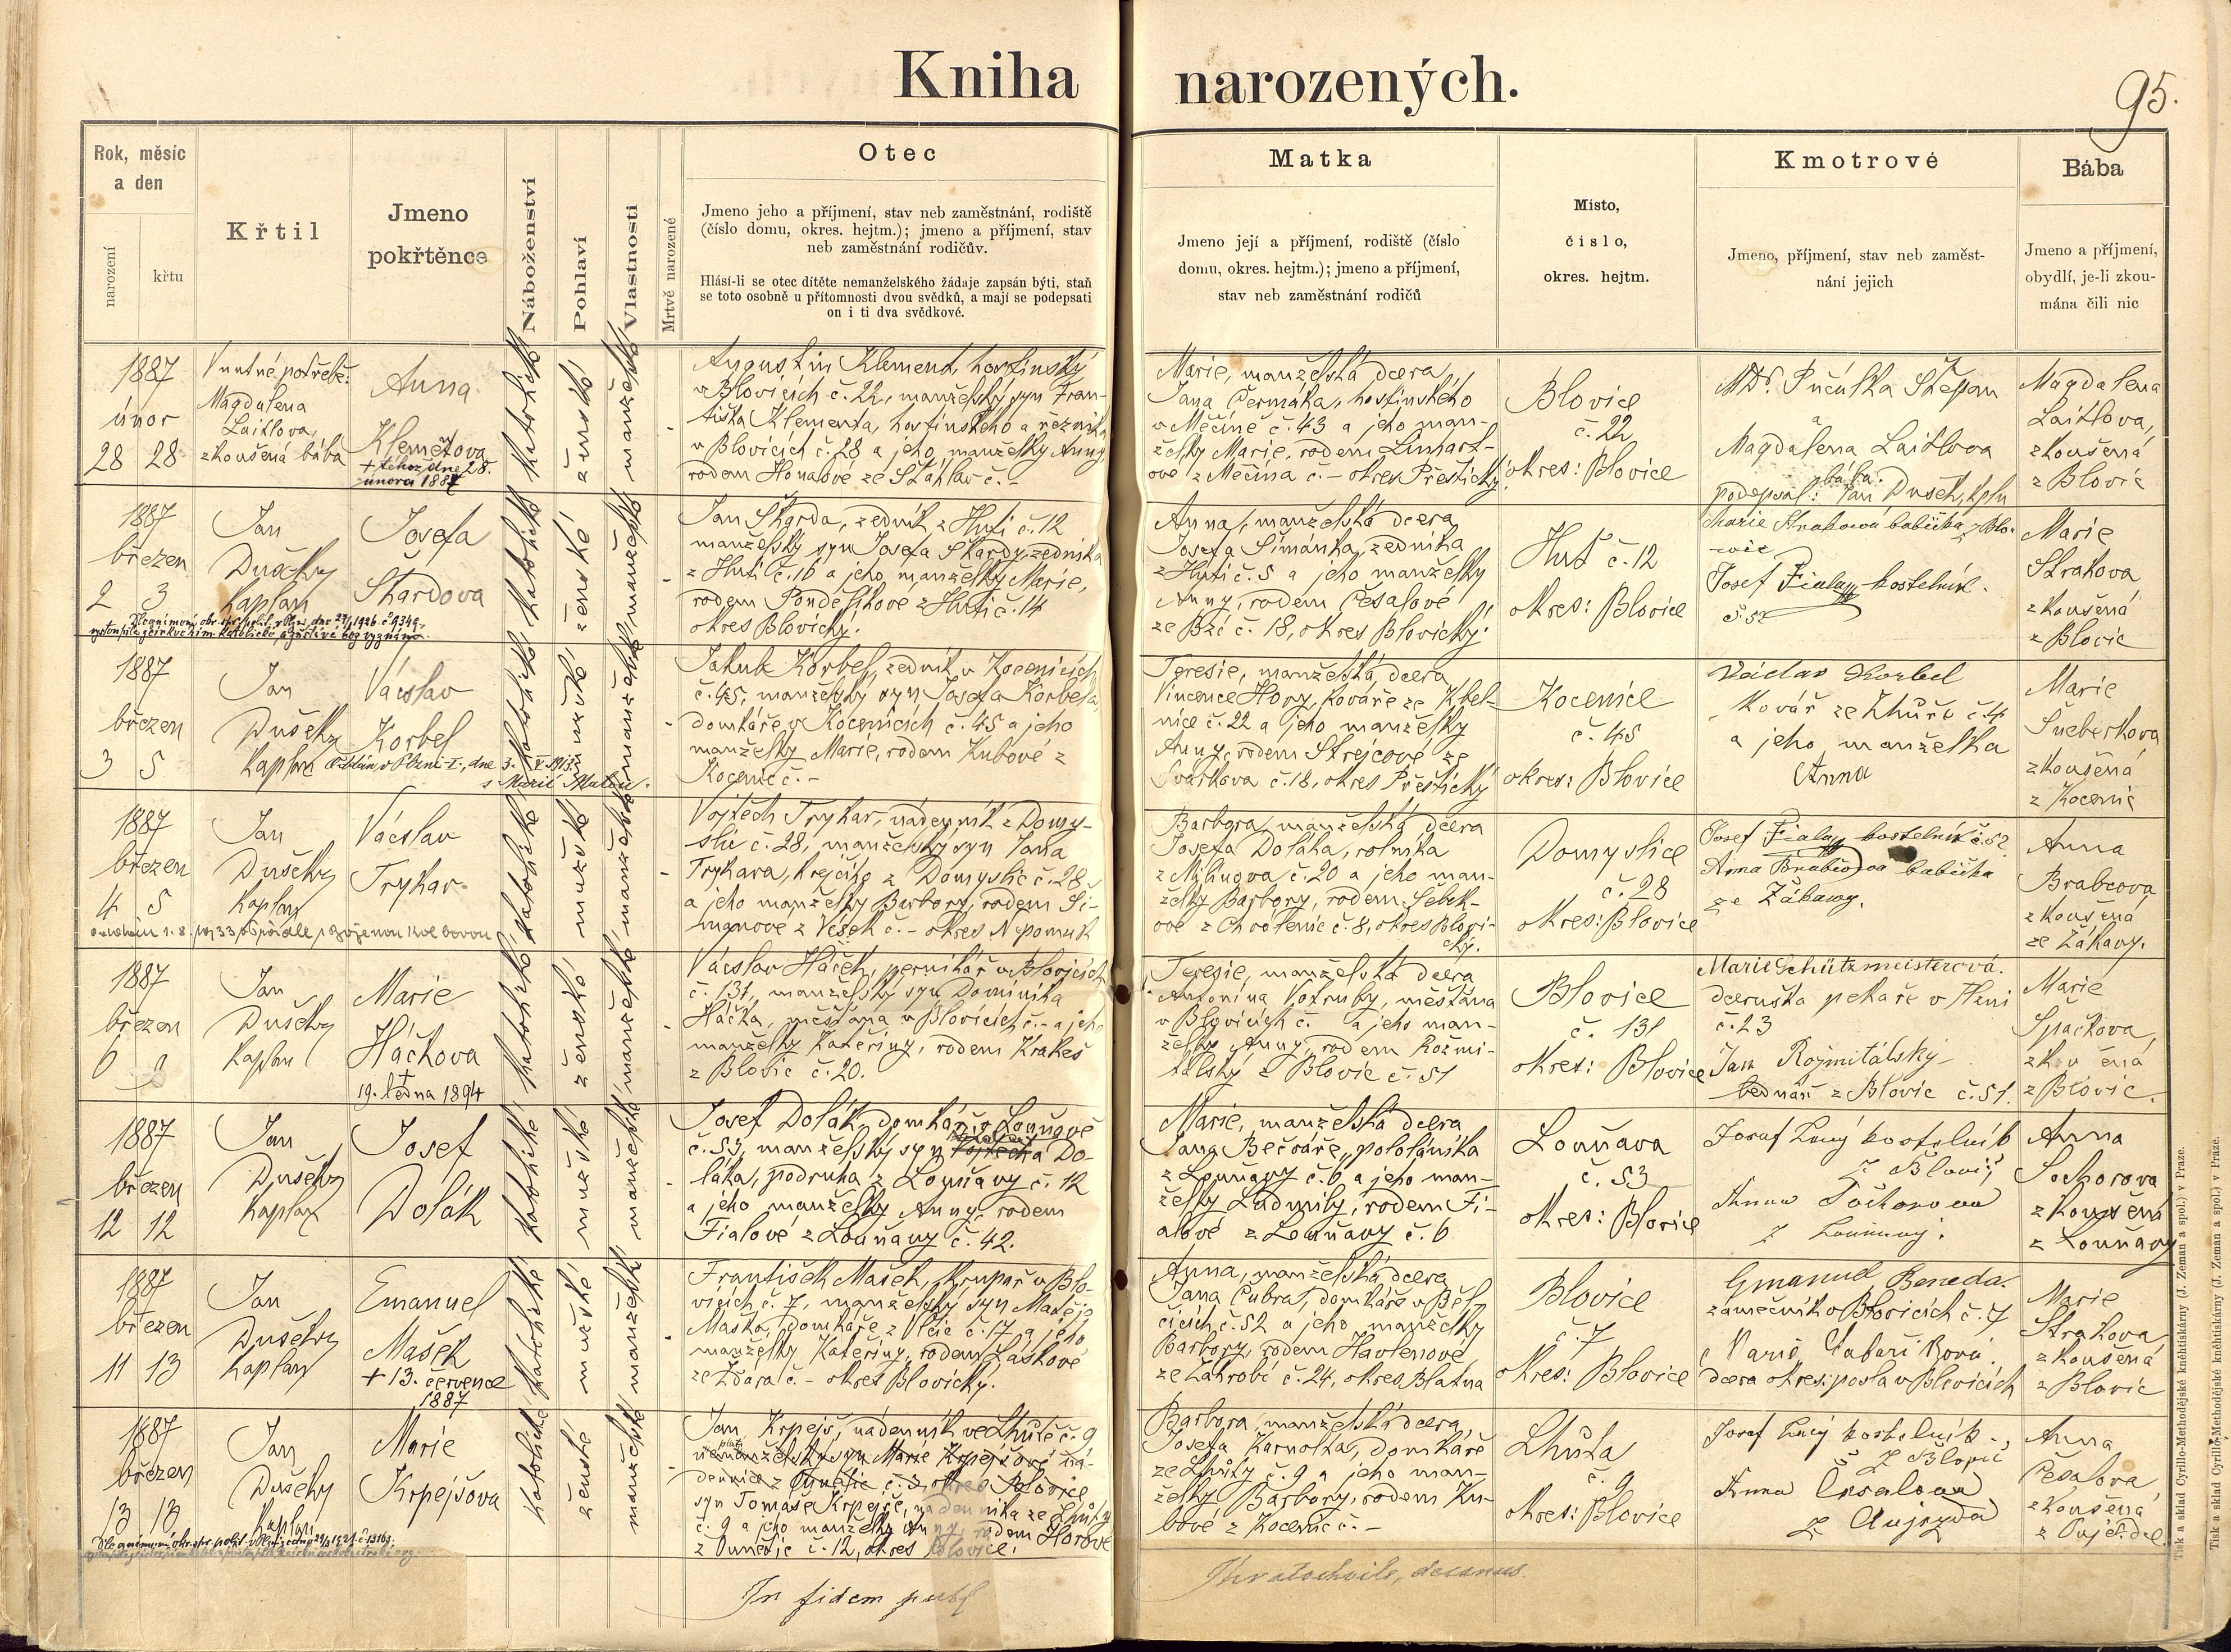 Kniha narozených.
95.
Rok, měsíc
a den
narození
křtu
Křtil
Jmeno
pokřtěnce
Náboženství
Pohlaví
Vlastnosti
Mrtvě narozené
Otec
Jmeno jeho a příjmení, stav neb zaměstnání, rodiště
(číslo domu, okres. hejtm.); jmeno a příjmení, stav
neb zaměstnání rodičův.
Hlásí-li se otec dítěte nemanželského žádaje zapsán býti, staň
se toto osobně u přítomnosti dvou svědků, a mají se podepsati
on i ti dva svědkové.
Matka
Jmeno její a příjmení, rodiště (číslo
domu, okres. hejtm.); jmeno a příjmení,
stav neb zaměstnání rodičů
Místo,
číslo,
okres. hejtm.
Kmotrové
Jmeno, příjmení, stav neb zaměst-
nání jejich
Bába
Jmeno a příjmení,
obydlí, je-li zkou-
mána čili nic
1887
únor
28 28
V nutné potřebě:
Magdalena
Laitlova,
zkoušená bába
Anna
Klemětova
+ téhož dne 28.
února 1887
katolické
ženské
manželské
Augustin Klement, hostinský
v Blovicích č. 22, manželský syn Fran-
tiška Klementa, hostinského a řezníka
v Blovicích č. 28 a jeho manželky Anny,
rodem Honalové ze Šťáhlav č. -
Marie, manželská dcera
Jana Čermáka, hostinského
v Měčíně č. 43 a jeho man-
želky Marie, rodem Linhart-
ové z Měčína č. - okres Přeštický
Blovice
č. 22
okres: Blovice
MDr. Pučálka Štěpan
a
Magdalena Laitlova
bába.
podepsal: Jan Dušek, kpln
Magdalena
Laitlova,
zkoušená
z Blovic
1887
březen
2 3
Jan
Dušek
Kaplan
Josefa
Škardova
katolické
ženské
manželské
Jan Škarda, zedník z Huti č. 12
manželský syn Josefa Škardy, zedníka
z Huti č. 16 a jeho manželky Marie,
rodem Pondělíkové z Huti č. 14
okres Blovický.
Anna, manželská dcera
Josefa Šimánka, zedníka
z Huti č. 5 a jeho manželky
Anny, rodem Česalové
ze Bzí č. 18, okres Blovický.
Huť č. 12
okres: Blovice
Marie Straková babička z Blo-
vic
Josef Fialy kostelník
č. 52
Marie
Strakova
zkoušená
z Blovic
1887
březen
3 5
Jan
Dušek
Kaplan
Václav
Korbel
s Marií
katolické
mužské
manželské
Jakub Korbel, zedník v Kocenicích
č. 45, manželský syn Josefa Korbela,
domkáře v Kocenicích č. 45 a jeho
manželky Marie, rodem Kubové z
Kocenic č. -
Teresie, manželská dcera
Vincence Hory, kováře ze Kbel-
nice č. 22 a jeho manželky
Anny, rodem Strejcové ze
Svárkova č. 18, okres Přeštický
Kocenice
č. 45
okres: Blovice
Václav Korbel
kovář ze Lhůře č. 4
a jeho manželka
Anna
Marie
Šueberkova
zkoušená
z Kocenic
1887
březen
4 5
Jan
Dušek
Kaplan
Václav
Trykar
katolické
mužské
manželské
Vojtěch Trykar, nádenník z Domy-
slic č. 28, manželský syn Jana
Trykara, krejčího z Domyslic č. 28
a jeho manželky Barbory, rodem Ši-
manové z Vísek č. - okres Nepomuk
Barbora, manželská dcera
Josefa Doláka, rolníka
z Milínova č. 20 a jeho man-
želky Barbory, rodem Šebek-
ové z Chválenic č. 8, okres Blovi-
cký.
Domyslice
č. 28
okres: Blovice
Josef Fialy kostelník č. 52
Anna Brabcova babička
ze Žákavy.
Anna
Brabcova,
zkoušená
ze Žákavy.
1887
březen
6
Jan
Dušek
Kaplan
Marie
Háčkova
+
19. ledna 1894
katolické
ženské
manželské
Václav Háček, perníkář v Blovicích
č. 131, manželský syn Dominika
Háčka, měšťana v Blovicích č. - a jeho
manželky Kateřiny, rodem Krakeš
z Blovic č. 20.
Teresie, manželská dcera
Antonína Votruby, měšťana
v Blovicích č. a jeho man-
želky Anny, rodem Rožmi-
tálský z Blovic č. 51
Blovice
č. 131
okres: Blovice
Marie Schützmeisterová.
dceruška pekaře v Plzni
č. 23
Jan Rožmitálský
bednář z Blovic č. 51.
Marie
Špačkova,
z Blovic.
1887
březen
12 12
Jan
Dušek
Kaplan
Josef
Dolák
katolické
mužské
manželské
Josef Dolák, domkář v Louňové
č. 53, manželský syn Vojtěcha Do-
láka, podruha z Louňavy č. 12
a jeho manželky Anny, rodem
Fialové z Louňavy č. 42.
Marie, manželská dcera
Jana Bečváře, pololáníka
z Louňavy č. 6 a jeho man-
želky Ludmily, rodem Fi-
alové z Louňavy č. 6
Louňava
č. 53
okres: Blovice
Josef kostelník
z Blovic
Anna
z Louňavy.
Anna
Sochorova
zkoušená
z Louňavy
1887
březen
11 13
Jan
Dušek
Kaplan
Emanuel
Mašek
+ 13. července
1887
katolické
mužské
manželské
František Mašek, krupař v Blo-
vicích č. 7, manželský syn Matěje
Maška, domkáře z Vlčic č. 17 a jeho
manželky Kateřiny, rodem Laškové
ze Žďára č. - okres Blovický.
Anna, manželská dcera
Jana Čubra, domkáře v Běl-
čicích č. 52 a jeho manželky
Barbory, rodem Havlenové
ze Záhrobí č. 24, okres Blatna
Blovice
č. 7
okres: Blovice
Emanuel Beneda.
zámečník v Blovicích č. 7
dcera okres: posla v Blovicích
Marie
Strakova
zkoušená
z Blovic
1887
březen
13 13
Jan
Dušek
Kaplan
Marie
Krpejšova
katolické
ženské
manželské
Jan Krpejš, nádenník ve Lhůtě č. 9
nemanželský syn Marie Krpejšové ná-
dennice z č. 3, okres Blovice
syn Tomáše Krpejše, nádenníka ze Lhůty
č. 9 a jeho manželky Anny, rodem Horové
č. 12, okres Blovice.
Barbora, manželská dcera
Josefa Karnolta, domkáře
ze Lhůty č. 9 a jeho man-
želky Barbory, rodem Ku-
bové z Kocenic č. -
Lhůta
č. 9
okres: Blovice
Josef kostelník
z Blovic
Anna Česalova
z Aujezda
Anna
Česalova,
zkoušená
In fidem publ
Kratochvile, decanus.
Tisk a sklad Cyrillo-Methodějské kněhtiskárny (J. Zeman a spol.) v Praze.
Tisk a sklad Cyrillo-Methodějské kněhtiskárny (J. Zeman a spol.) v Praze.